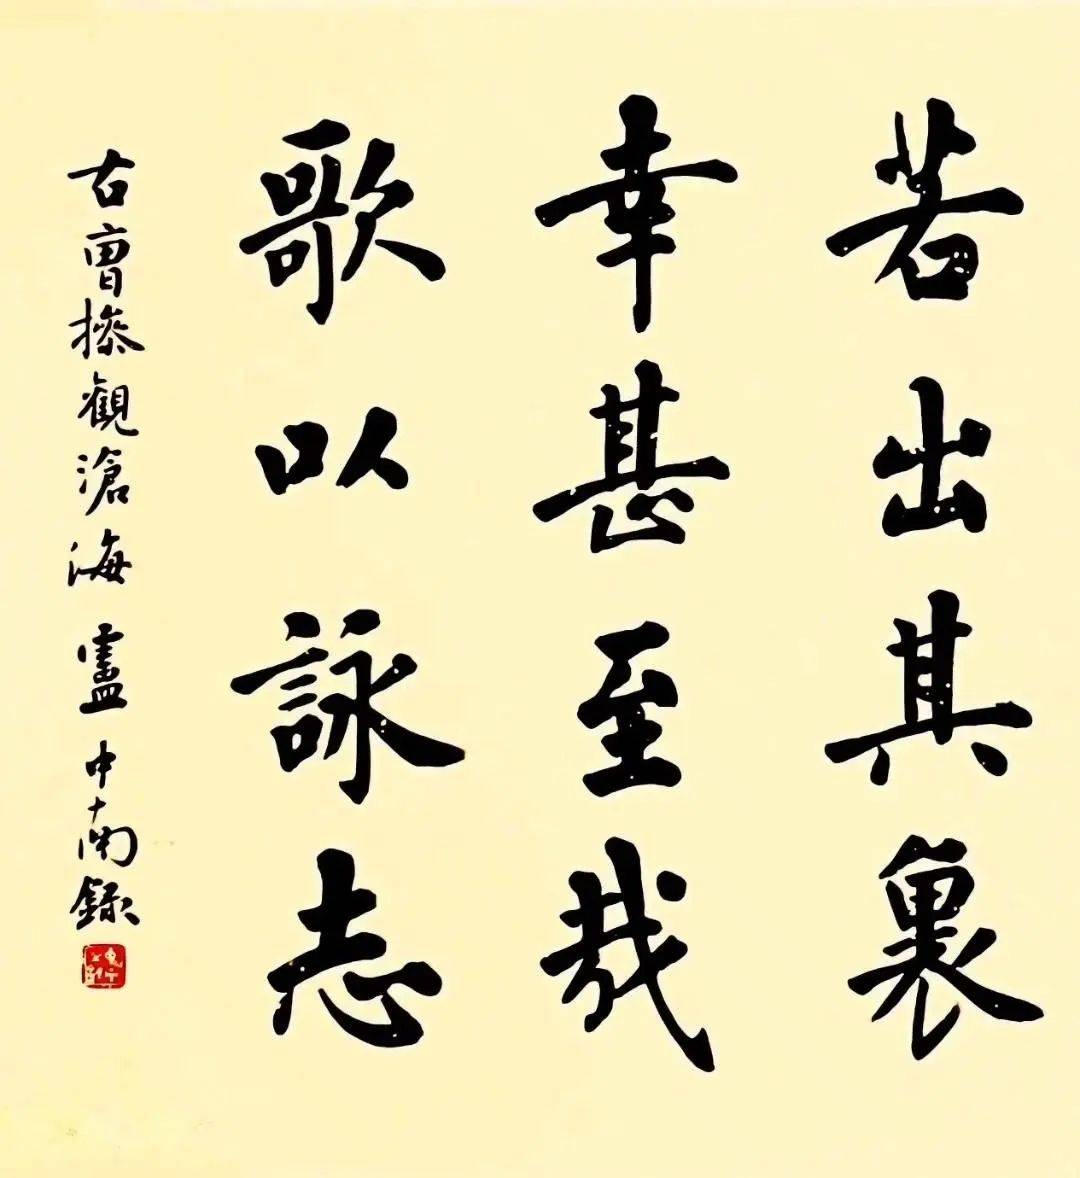 若出其裏
幸甚至哉
歌以詠志
右曹操觀滄海 盧中南錄